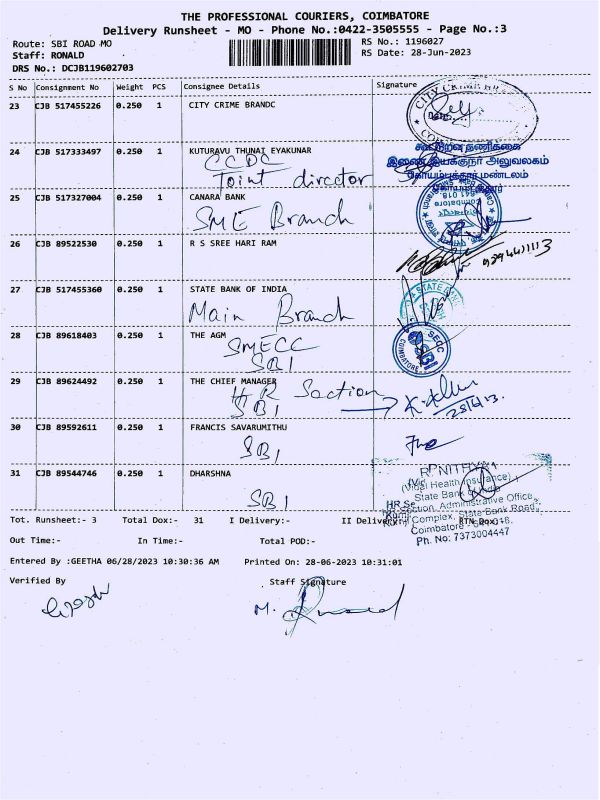 THE PROFESSIONAL COURIERS, COIMBATORE
Delivery Runsheet - MO - Phone No.:0422-3505555 - Page No.:3
Route: SBI ROAD MO
RS No.: 1196027
Staff: RONALD
RS Date: 28-Jun-2023
DRS No.: DCJB119602703
S No Consignment No Weight PCS Consignee Details Signature
23 CJB 517455226 0.250 1 CITY CRIME BRANDC
24 CJB 517333497 0.250 1 KUTURAVU THUNAI EYAKUNAR
CCDC
Joint director
கூட்டுறவு தணிக்கை
இணை இயக்குநர் அலுவலகம்
கோயம்புத்தூர் மண்டலம்
25 CJB 517327004 0.250 1 CANARA BANK
SME Branch
26 CJB 89522530 0.250 1 R S SREE HARI RAM
27 CJB 517455360 0.250 1 STATE BANK OF INDIA
Main Branch
28 CJB 89618403 0.250 1 THE AGM
SMECC
SBI
SECC
COIMBATORE
29 CJB 89624492 0.250 1 THE CHIEF MANAGER
HR Section
SBI
30 CJB 89592611 0.250 1 FRANCIS SAVARUMITHU
SBI
31 CJB 89544746 0.250 1 DHARSHNA
SBI
R. NITHYA
(Vidal Health Insurance)
State Bank of India
HR Section, Administrative Office,
Complex, State Bank Road,
Coimbatore - 641 018.
Ph. No: 7373004447
Tot. Runsheet:- 3 Total Dox:- 31 I Delivery:- II Delivery:- RTN Dox:-
Out Time:- In Time:- Total POD:-
Entered By :GEETHA 06/28/2023 10:30:36 AM Printed On: 28-06-2023 10:31:01
Verified By Staff Signature